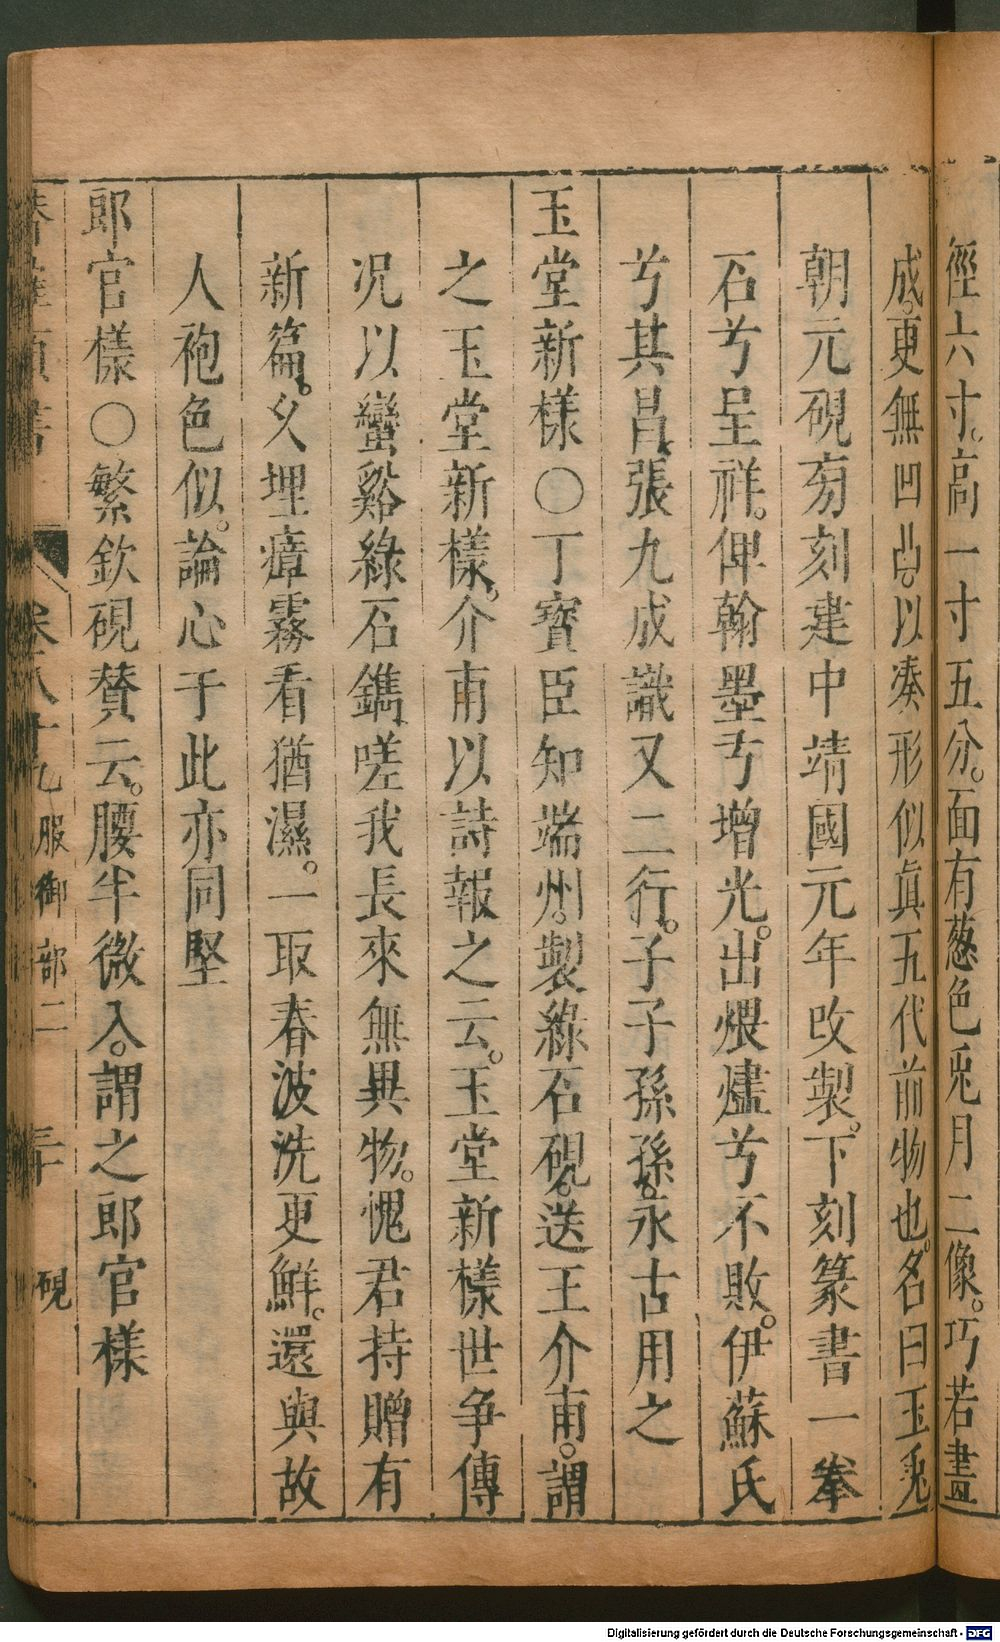 徑六寸。高一寸五分。面有葱色兎月二像。巧若畫
成。更無凹凸。以湊形似眞五代前物也。名曰玉兎
朝元硯旁刻建中靖國元年攺製。下刻篆書一拳
石兮呈祥。俾翰墨兮增光。出煨爐兮不敗。伊蘇氏
兮其昌張九成識又二行。子子孫孫。永古用之
玉堂新樣〇丁寳臣知端州。製綠石硯。送王介甫。謂
之玉堂新樣。介甫以詩報之云。玉堂新樣世争傳
况以蠻谿綠石鐫嗟我長來無異物。愧君持贈有
新篇。乆埋瘴霧看猶濕。一取春波洗更鮮。還與故
人袍色似。論心于此亦同堅
郎官樣〇繁欽硯賛云。腰半微入。謂之郎官樣
卷八十九 服御部二 三十 硯
Digitalisierung gefördert durch die Deutsche Forschungsgemeinschaft - DFG